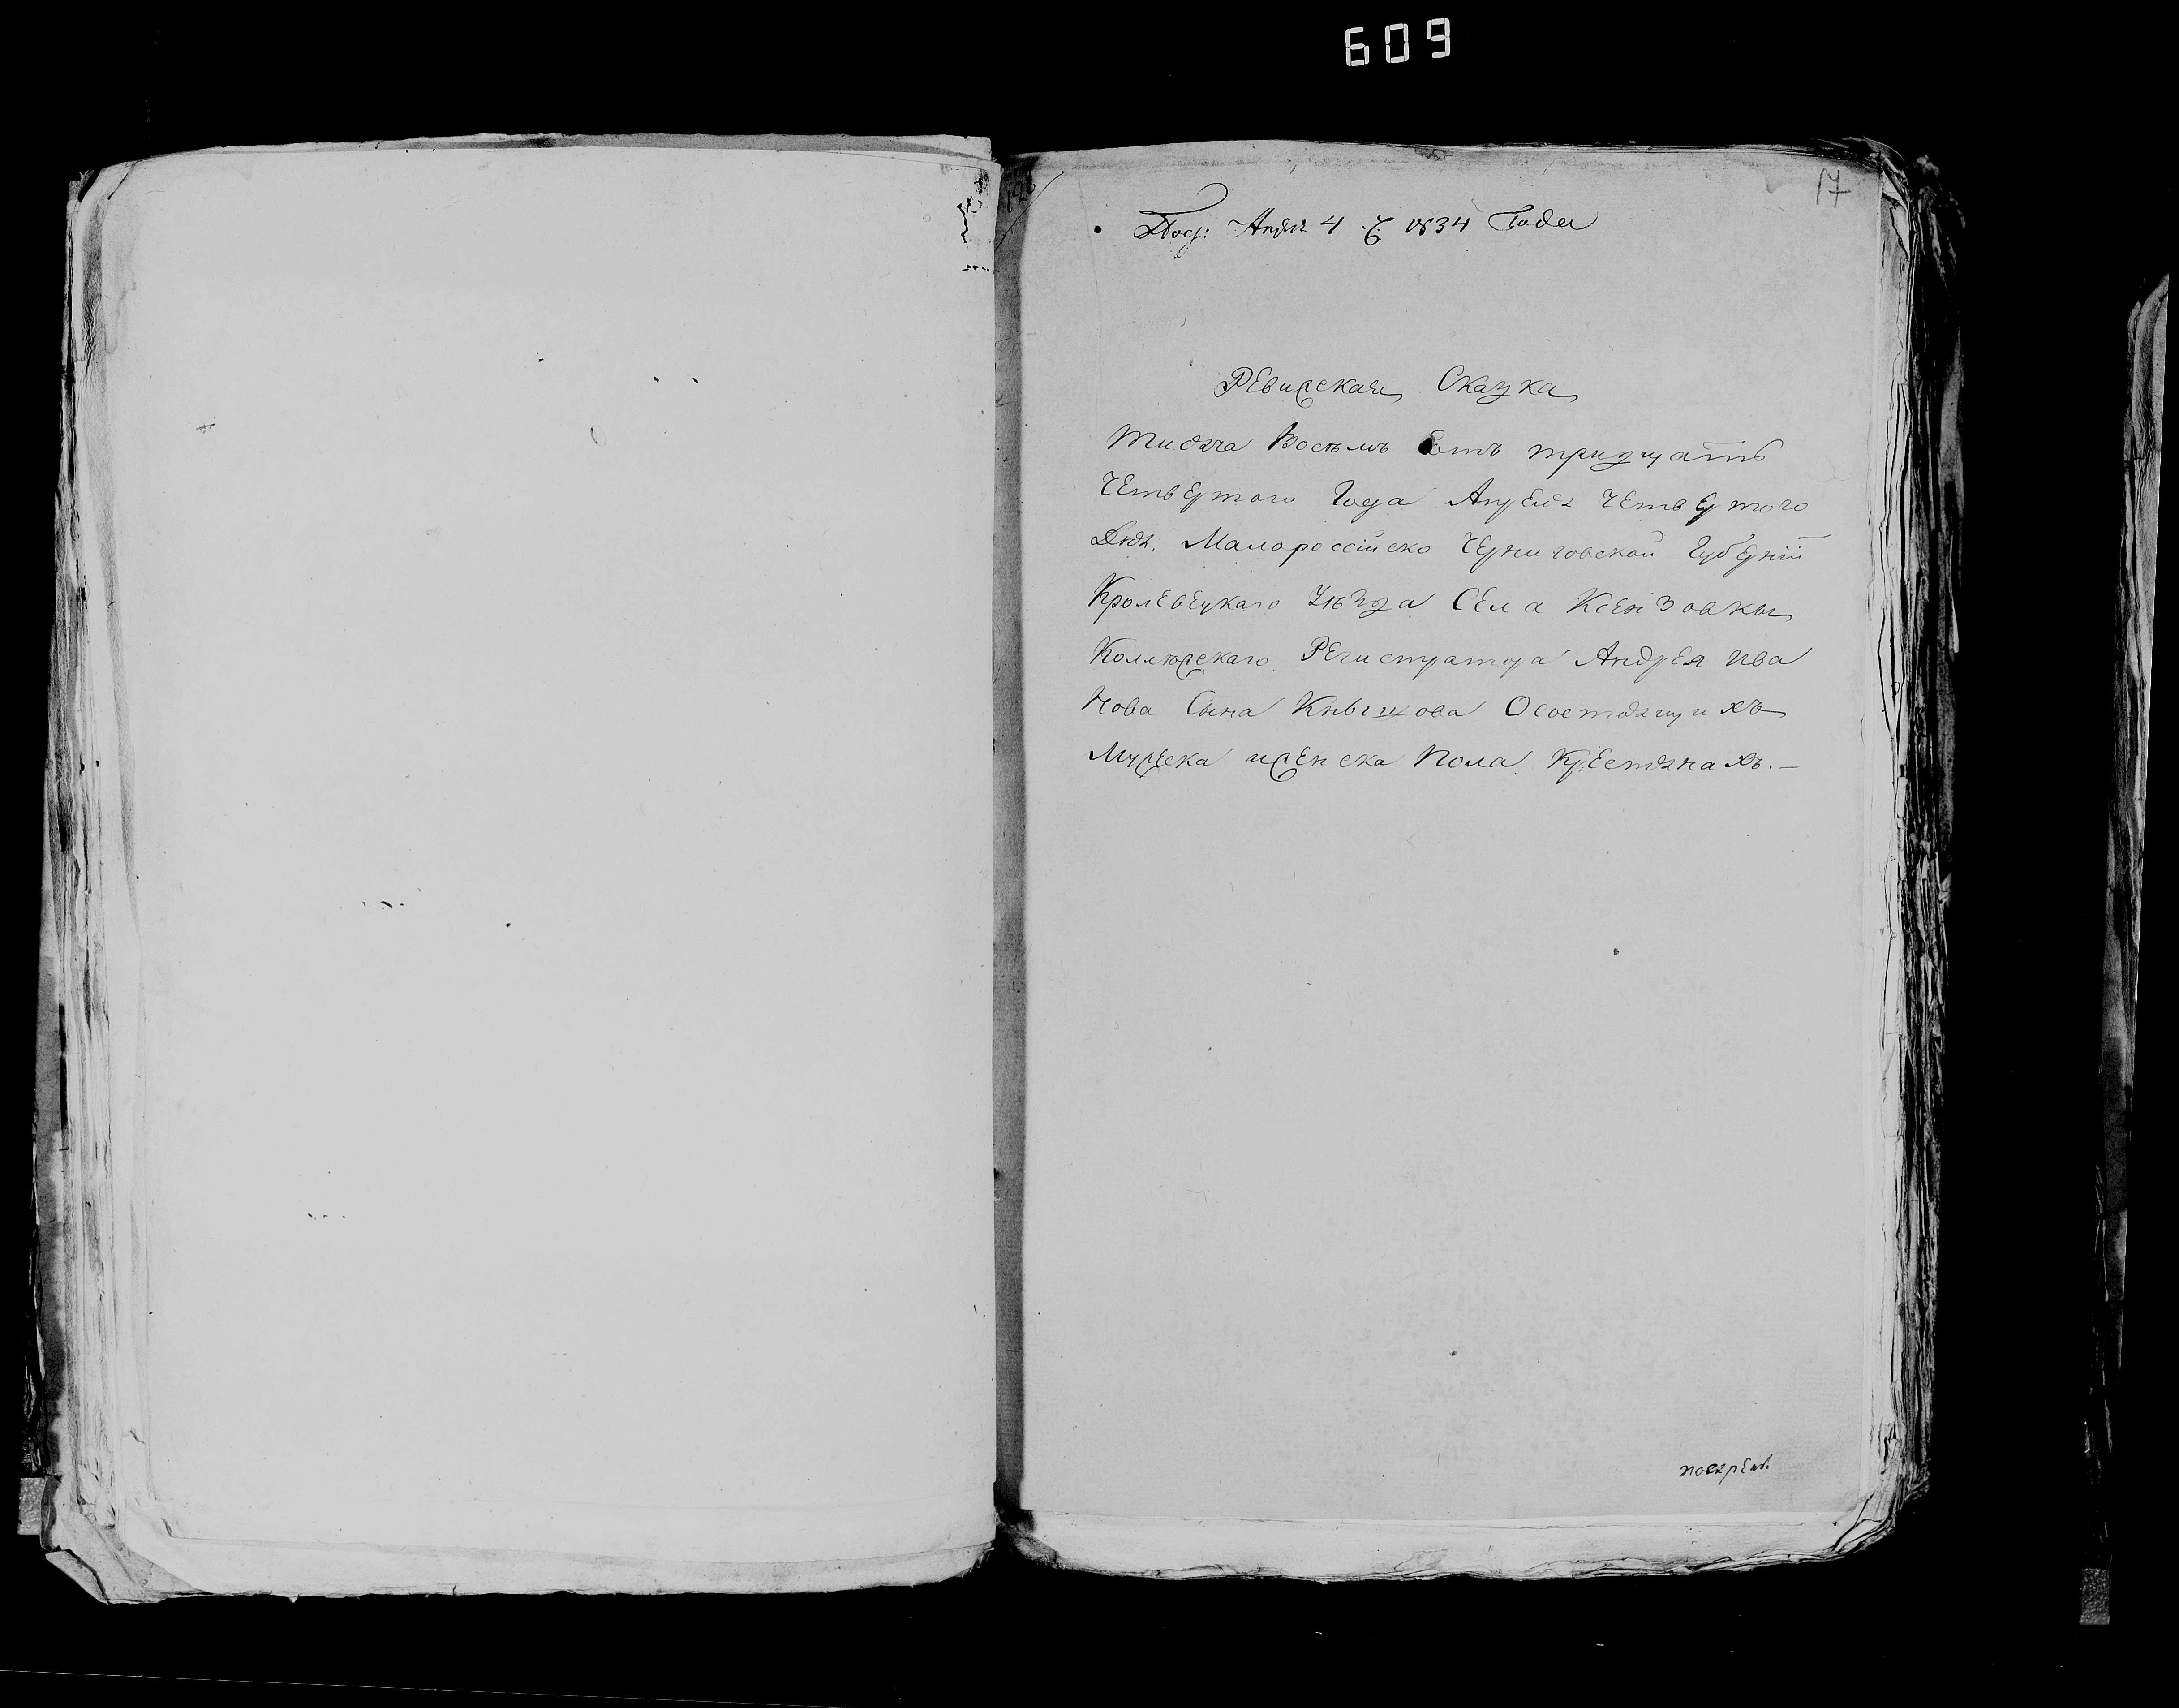 609
17
Под: Апреля 4 ч. 1834 Года
Ревижская Сказка
Тисяча Восемъ Сотъ тридцать
Четвертого Года Апреля Четвертого
Дня. Малороссійско Черниговской Губерніи
Кролевецкаго Уѣзда Села Ксензовки
Коллежскаго Регистратора Андрея Ива
Нова Сына Осостоящихъ
Мужеска иженска Пола Крестянахъ.—